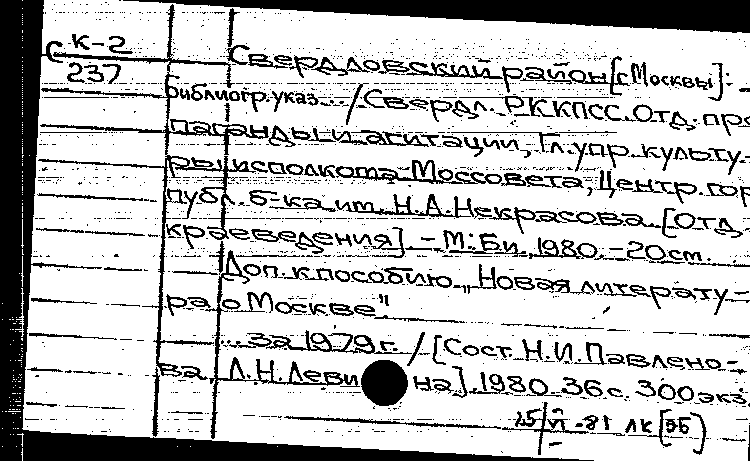 С К-2
237
Свердловский район [г. Москвы]: -
библиогр. указ... / Свердл. РК КПСС. Отд. про
паганды и агитации, Гл. упр. культу-
ры исполкома Моссовета, Центр. гор
публ. б-ка им. Н.А. Некрасова. [Отд.
краеведения]. - М.: Б.и., 1980. - 20 ст.
Доп. к пособию „Новая литерату-
ра о Москве"
... за 1979 г. / [Сост. Н.И. Павлено-
ва, Л.Н. Леви на]. 1980. 36 с. 300 экз.
25/VI -81 ЛК [ЭБ]